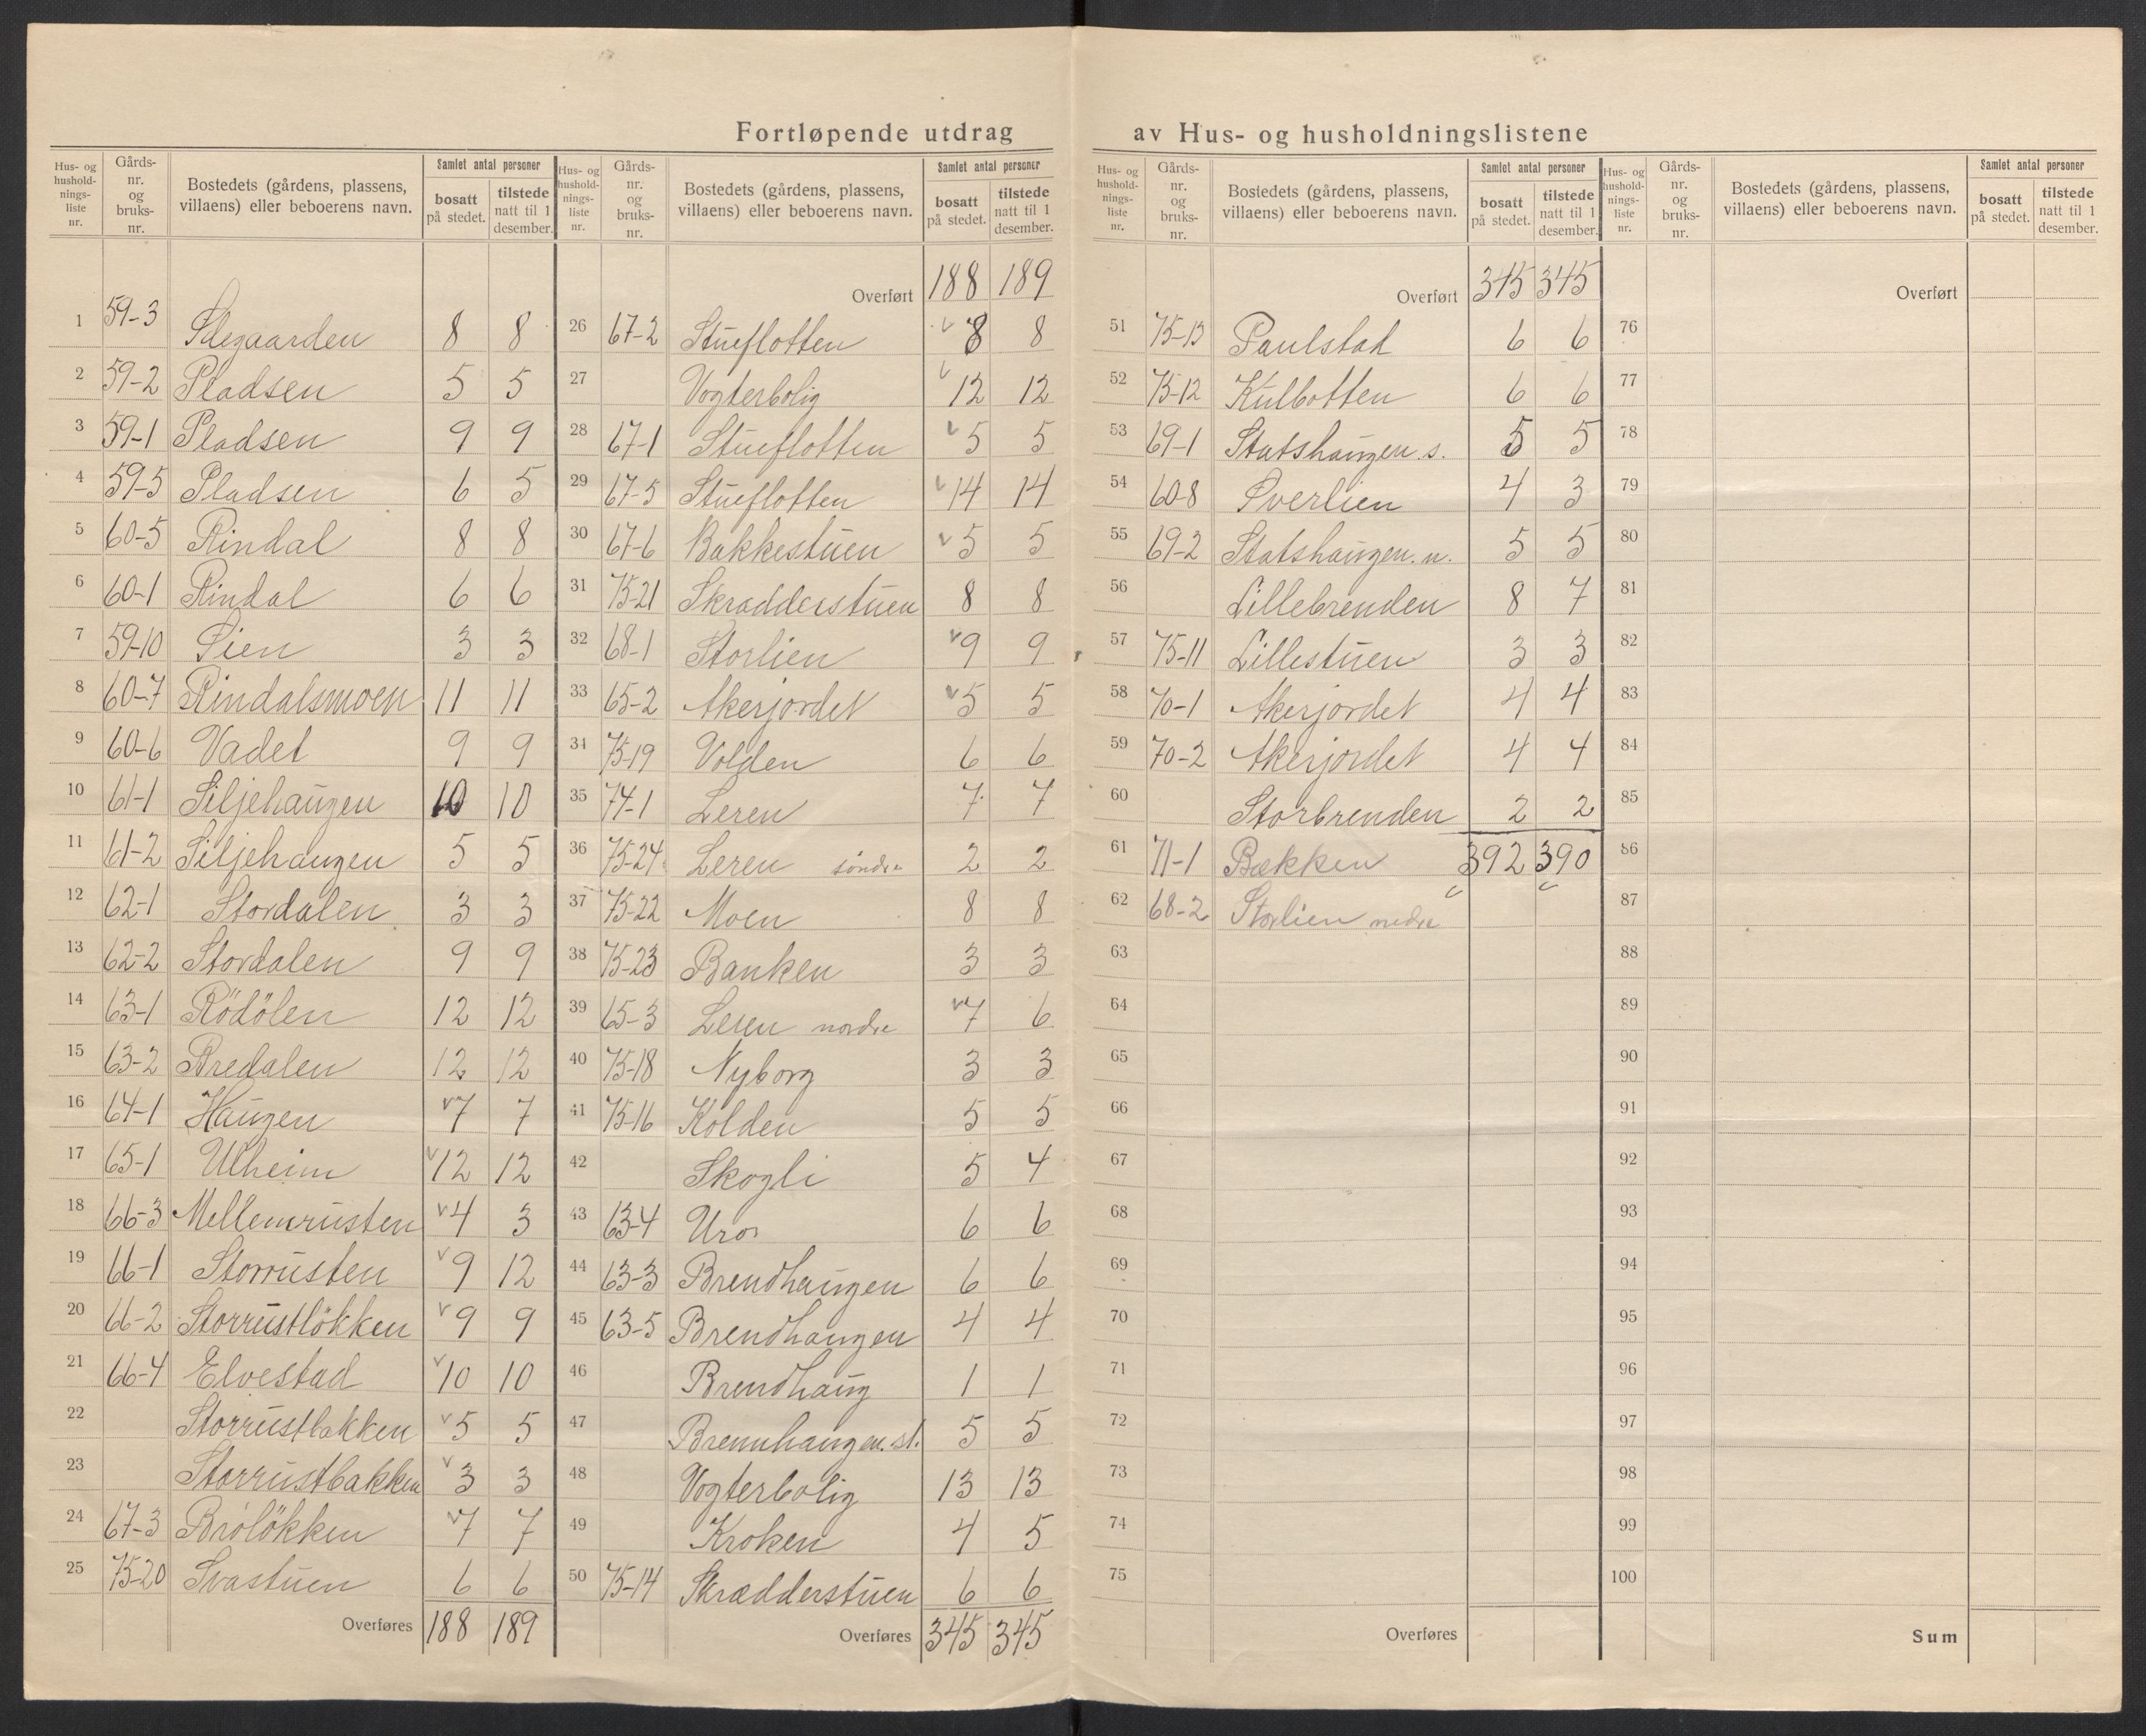 Fortløpende utdrag av Hus- og husholdningslistene
Hus- og husholdnings-liste nr. | Gårds-nr. og bruks-nr. | Bostedets (gårdens, plassens, villaens) eller beboerens navn. | Samlet antal personer | bosatt på stedet. | tilstede natt til 1 desember.
1 59-3 8 8
2 59-2 Pladsen 5 5
3 59-1 Pladsen 9 9
4 59-5 Pladsen 6 5
5 60-5 Rindal 8 8
6 60-1 Rindal 6 6
7 59-10 Lien 3 3
8 60-7 Rindalsmoen 11 11
9 60-6 Vadet 9 9
10 61-1 Siljehaugen 10 10
11 61-2 Siljehaugen 5 5
12 62-1 Stordalen 3 3
13 62-2 Stordalen 9 9
14 63-1 Rödölen 12 12
15 63-2 Bredalen 12 12
16 64-1 Haugen v 7 7
17 65-1 Ulheim v 12 12
18 66-3 Mellemrusten v 4 3
19 66-1 Storrusten v 9 12
20 66-2 Storrustlökken v 9 9
21 66-4 Elvestad v 10 10
22 Storrustbakken v 5 5
23 Storrustbakken v 3 3
24 67-3 Brolökken v 7 7
25 75-20 Svastuen 6 6
Overføres 188 189
Hus- og husholdnings-liste nr. | Gårds-nr. og bruks-nr. | Bostedets (gårdens, plassens, villaens) eller beboerens navn. | Samlet antal personer | bosatt på stedet. | tilstede natt til 1 desember.
Overført 188 189
26 67-2 Stueflotten v 8 8
27 Vogterbolig v 12 12
28 67-1 Stueflotten v 5 5
29 67-5 Stueflotten v 14 14
30 67-6 Bakkestuen v 5 5
31 75-21 Skradderstuen 8 8
32 68-1 Storlien v 9 9
33 65-2 Akerjordet v 5 5
34 75-19 Volden 6 6
35 74-1 Leren 7 7
36 75-24 Leren söndre 2 2
37 75-22 Moen 8 8
38 75-23 Banken 3 3
39 65-3 Leren nordre v 7 6
40 75-18 Nyborg 3 3
41 75-16 Kolden 5 5
42 Skogli 5 4
43 63-4 Uros 6 6
44 63-3 Brendhaugen 6 6
45 63-5 Brendhaugen 4 4
46 Brendhaug 1 1
47 Brennhaugen st. 5 5
48 Vogterbolig 13 13
49 Kroken 4 5
50 75-14 Skrædderstuen 6 6
Overføres 345 345
Hus- og husholdnings-liste nr. | Gårds-nr. og bruks-nr. | Bostedets (gårdens, plassens, villaens) eller beboerens navn. | Samlet antal personer | bosatt på stedet. | tilstede natt til 1 desember.
Overført 345 345
51 75-13 Paulstad 6 6
52 75-12 Kulbotten 6 6
53 69-1 Statshaugen s. 5 5
54 60-8 Överlien 4 3
55 69-2 Statshaugen. n. 5 5
56 Lillebrenden 8 7
57 75-11 Lillestuen 3 3
58 70-1 Akerjordet 4 4
59 70-2 Akerjordet 4 4
60 Storbrenden 2 2
61 71-1 Bækken 392 390
62 68-2 Storlien nedre
63
64
65
66
67
68
69
70
71
72
73
74
75
Overføres
Hus- og husholdnings-liste nr. | Gårds-nr. og bruks-nr. | Bostedets (gårdens, plassens, villaens) eller beboerens navn. | Samlet antal personer | bosatt på stedet. | tilstede natt til 1 desember.
Overført
76
77
78
79
80
81
82
83
84
85
86
87
88
89
90
91
92
93
94
95
96
97
98
99
100
Sum